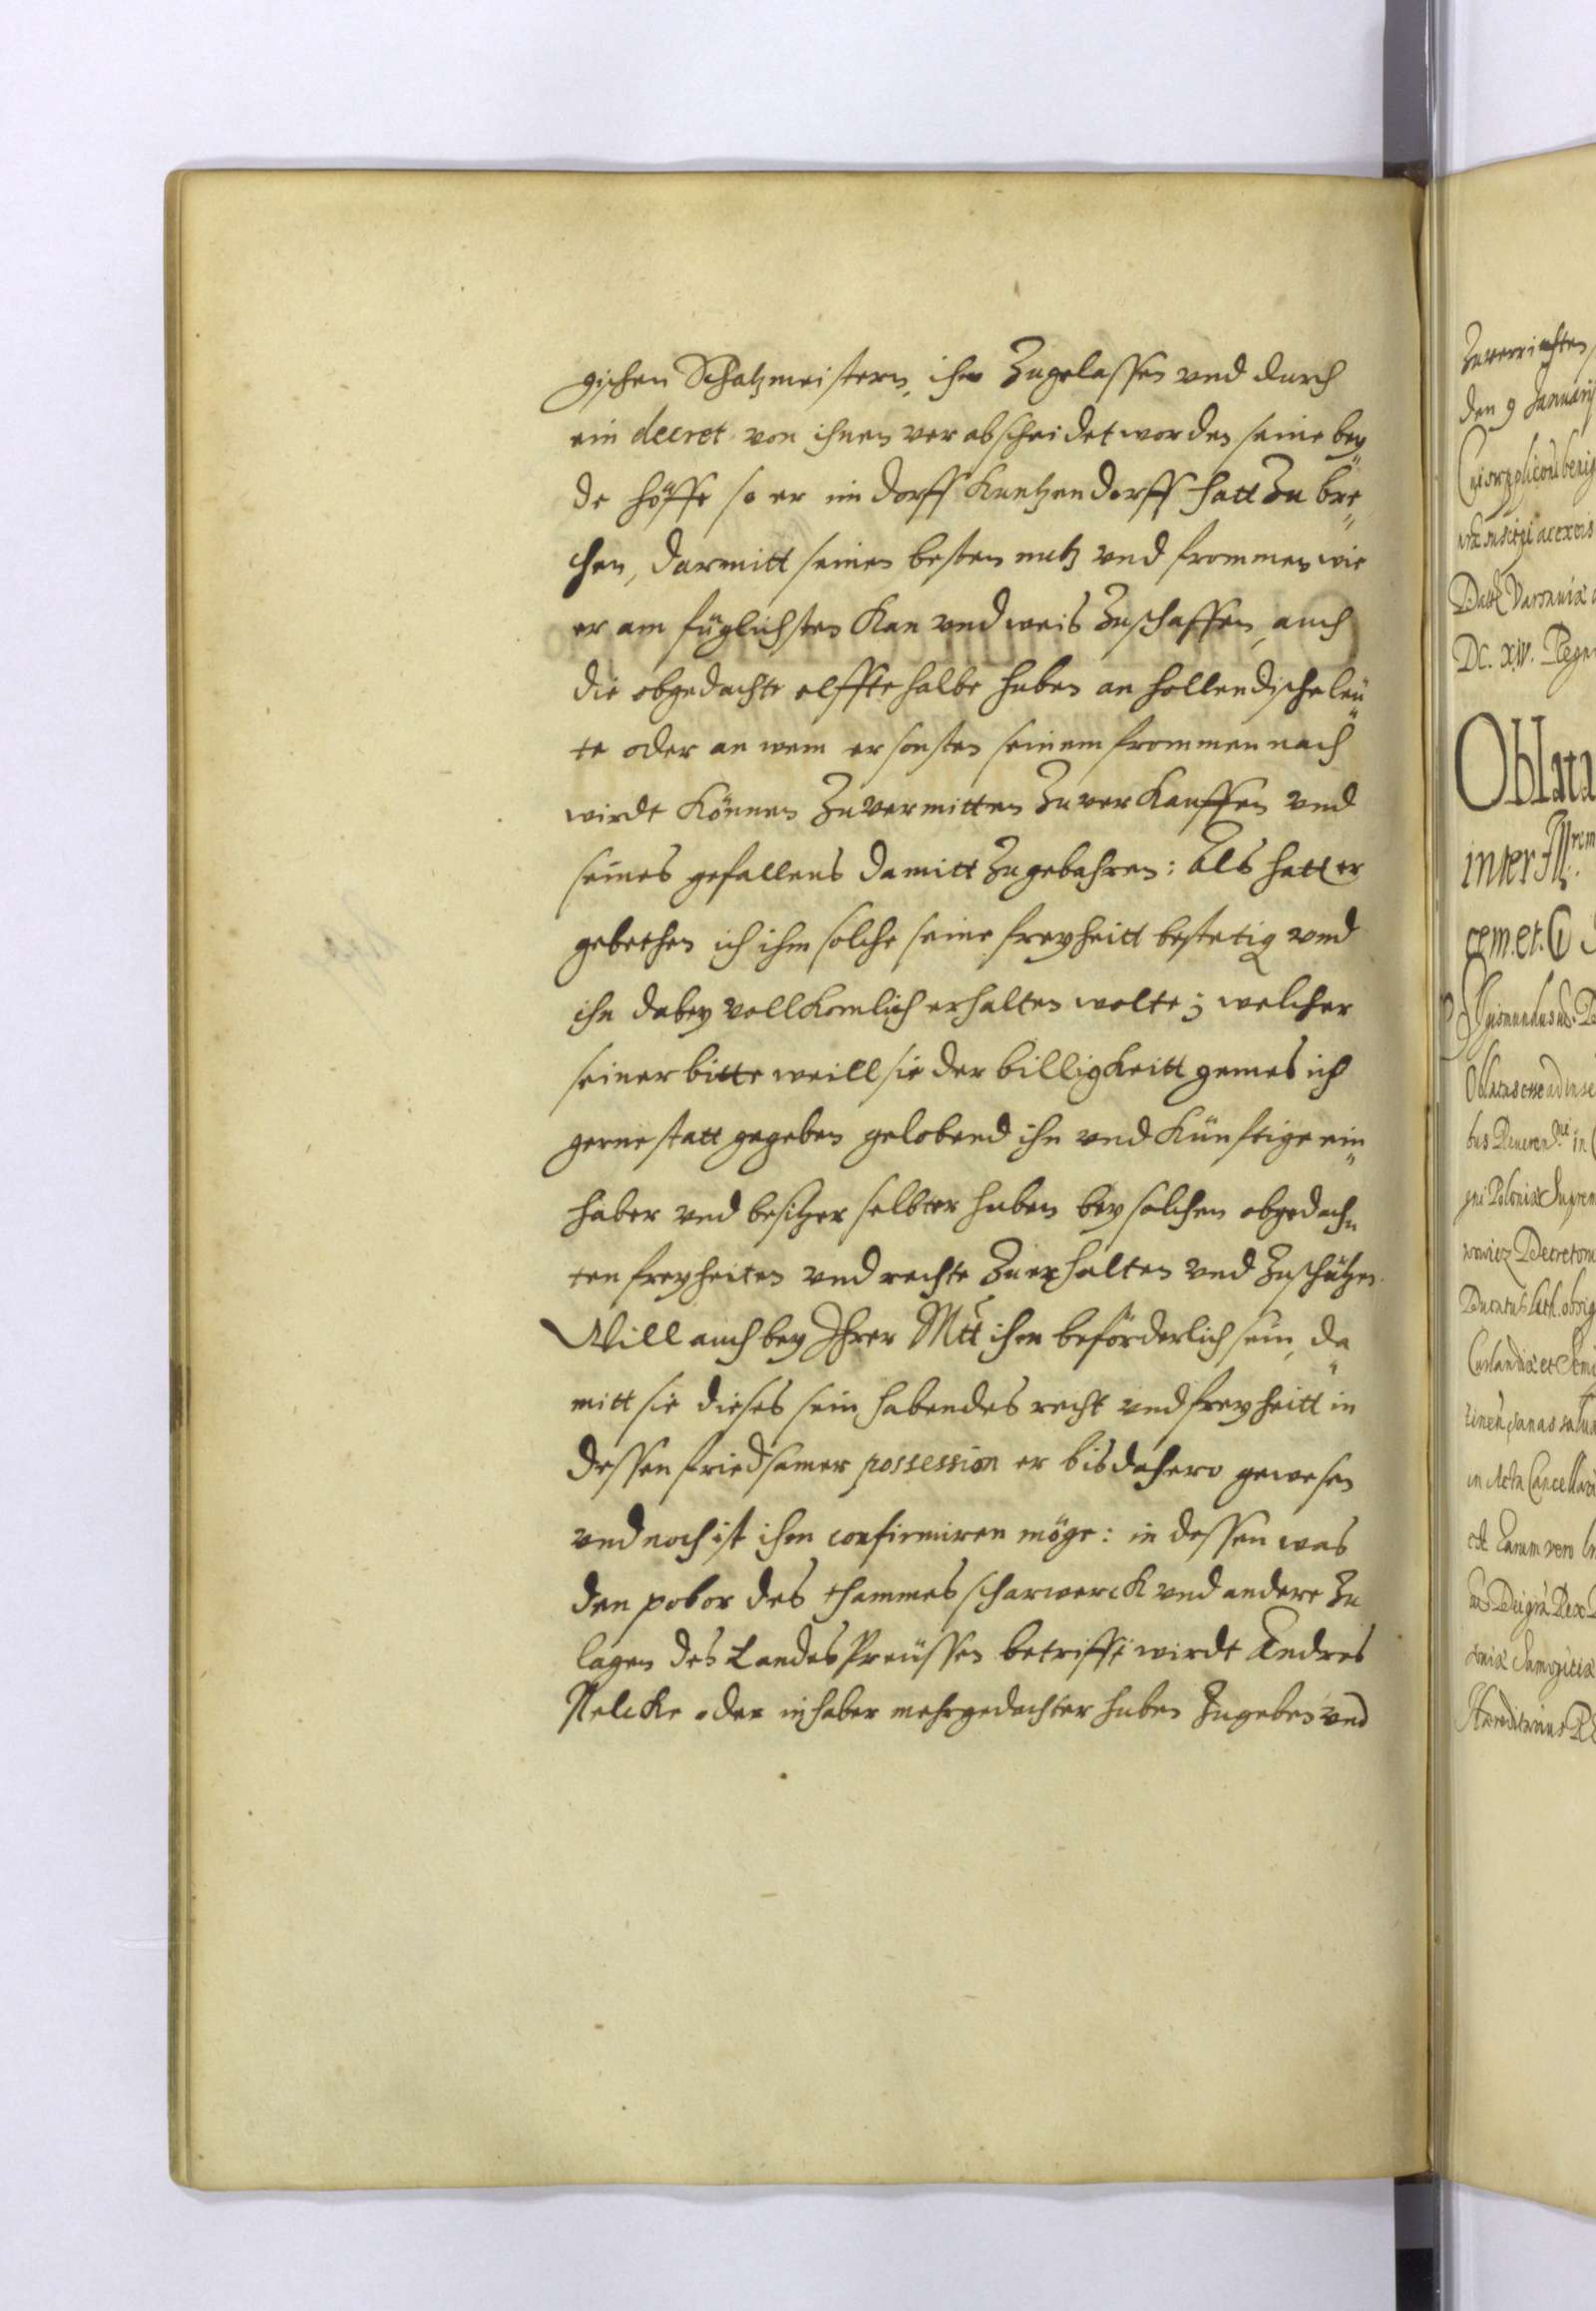 gischen Schatzmeistern, ihm Zugelassen vnd durch
ein decret von ihnen verabscheidet worden seine bey„
de höffe so er im dorff Kuntzendorff hatt Zu bre„
chen, darmitt seinen besten nutz vnd frommen wie
er am füglichsten Kan vnd weis Zuschaffen, auch
die obgedachte elffte halbe huben an hollendische leü„
te oder an wem er sonsten seinem frommen nach
wirdt Können Zuvermitten Zuver Kauffen vnd
seines gefallens damitt Zugebahren: Als hatt er
gebethen ich ihm solche seine freyheitt bestetig vnd
ihn dabey vollKomlich erhalten wolte; welcher
seiner bitte weill sie der billigKeitt gemes ich
gerne statt gegeben gelobend ihn vnd Künftige ein„
haber vnd besitzer selbter huben bey solchen obgedach„
ten freyheiten vnd rechte Zuerhalten vnd Zuschützen.
Will auch bey Ihrer Mtt ihm beförderlich sein, da„
mitt sie dieses sein habendes recht vnd freyheitt in
dessen friedsamer possession er bis dahero gewesen
vnd noch ist ihm confirmiren möge: in dessen was
den pobor des thammes scharwercK vnd andere Zu
lagen des Landes Preüssen betrifft wirdt Andres
NelcKe oder inhaber mehrgedachter huben Zugeben vnd
Zuverrichten
den 9 Januarij
DC. XIV. Regn
Oblata
inter Illrem
cem. et. G